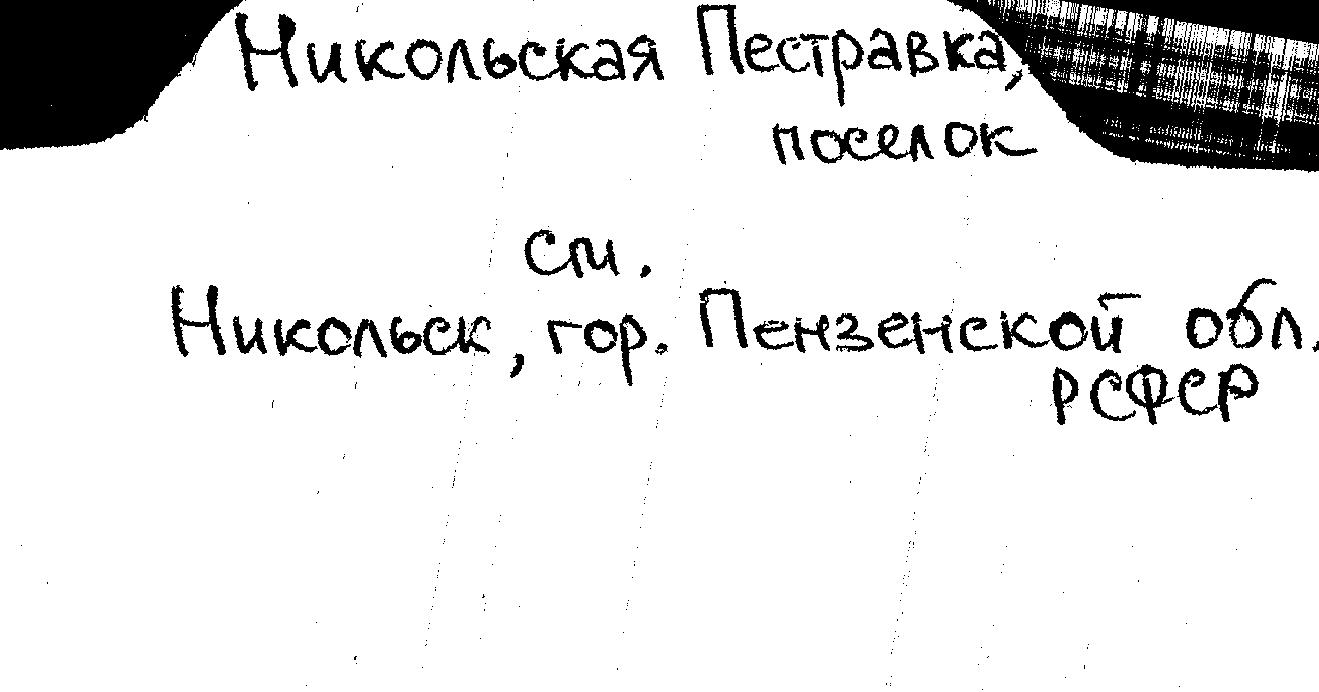 Никольская Пестравка,
поселок
см.
Никольск, гор. Пензенской обл.
РСФСР